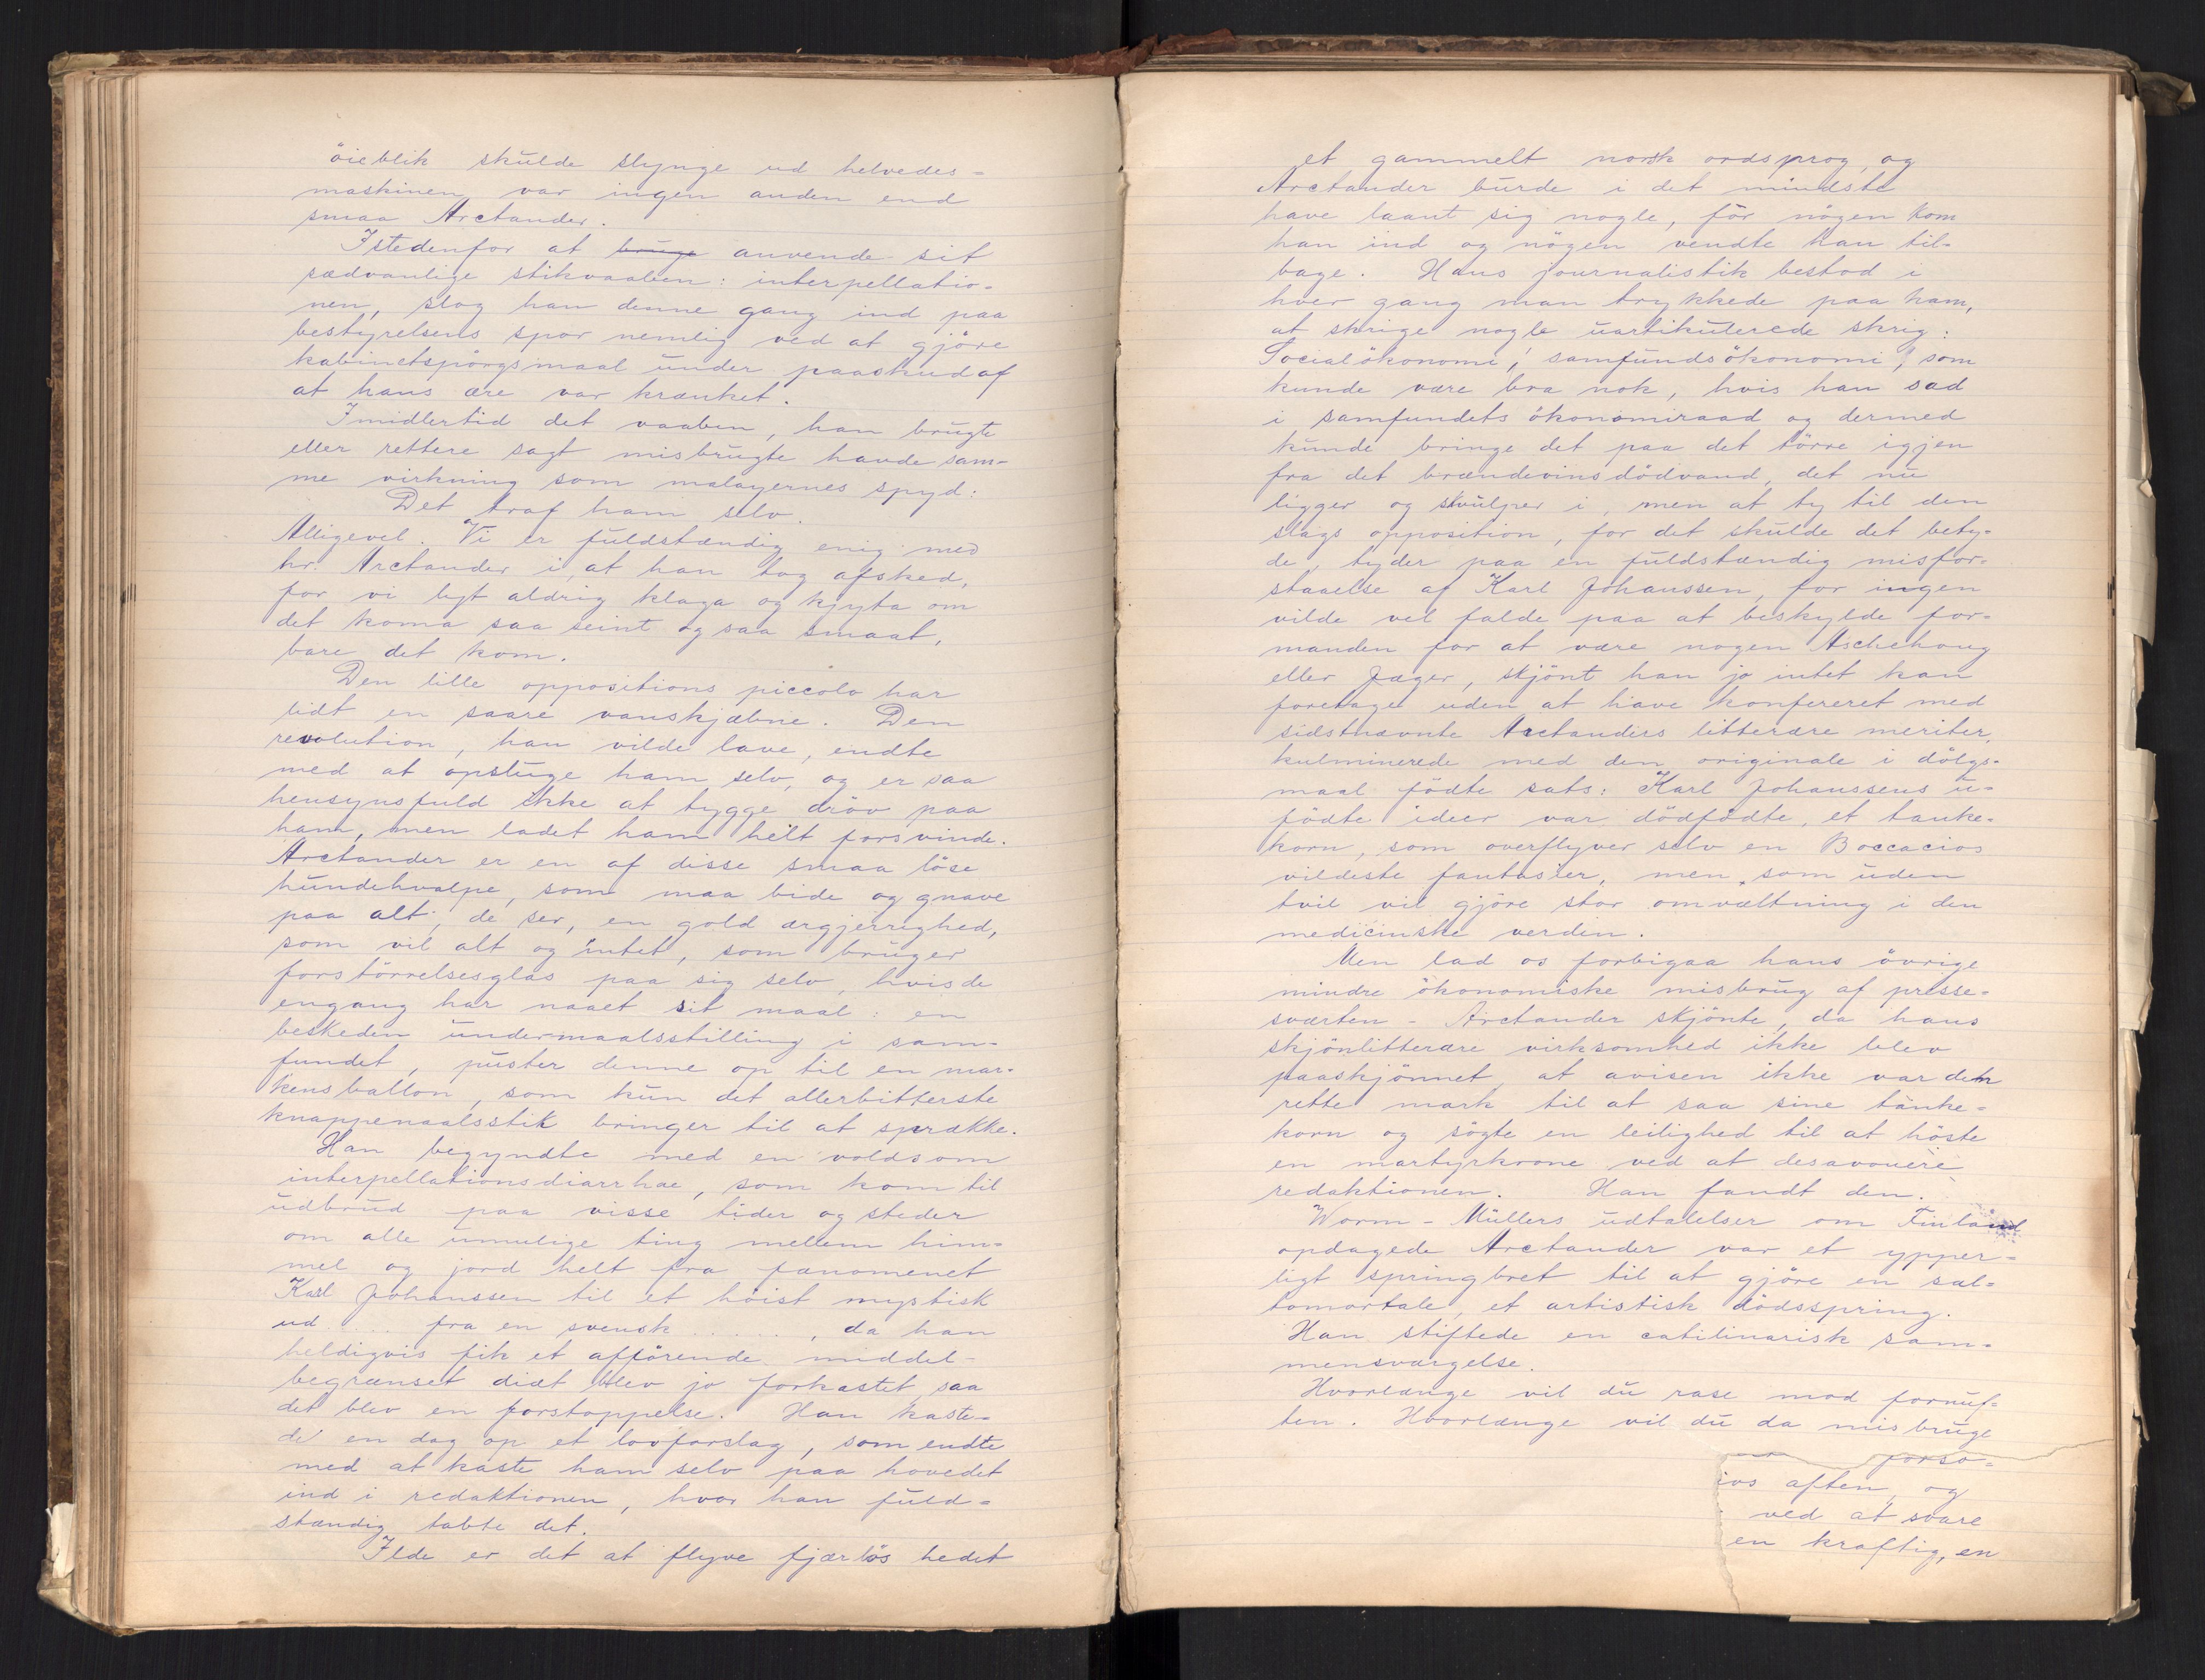 öieblik skulde slynge ud helvedes-
maskinen var ingen anden end
smaa Arctander.
Istedenfor at bruge anvende sit
sædvanlige stikvaaben: interpellatio-
nen, slog han denne gang ind paa
bestyrelsens spor nemlig ved at gjöre
kabinetspörgsmaal under paaskud af
at hans ære var krænket.
Imidlertid det vaaben, han brugte
eller rettere sagt misbrugte havde sam-
me virkning som malayernes spyd:
Det traf ham selv.
Alligevel. Vi er fuldstændig enig med
hr. Arctander i, at han tog afsked,
for vi lyt aldrig klaga og kjyta om
det koma saa seint og saa smaat,
bare det kom.
Den lille oppositions piccolo har
lidt en saare vanskjæbne. Den
revolution, han vilde lave, endte
med at opsluge ham selv, og er saa
hensynsfuld ikke at tygge dröv paa
ham, men ladet ham helt forsvinde.
Arctander er en af disse smaa löse
hundehvalpe, som maa bide og gnave
paa alt, de ser, en gold ærgjerrighed,
som vil alt og intet, som bruger
forstörrelsesglas paa sig selv, hvis de
engang har naaet sit maal: en
beskeden undermaalsstilling i sam-
fundet, puster denne op til en mar-
kensballon, som kun det allerbitterste
knappenaalsstik bringer til at sprække.
Han begyndte med en voldsom
interpellationsdiarrhae, som kom til
udbrud paa visse tider og steder
om alle umulige ting mellem him-
mel og jord helt fra fænomenet
Karl Johanssen til et höist mystisk
ud.... fra en svensk ......, da han
heldigvis fik et afförende middel-
begrænset diæt blev jo forkastet, saa
det blev en forstoppelse. Han kaste-
de en dag op et lovforslag, som endte
med at kaste ham selv paa hovedet
ind i redaktionen, hvor han fuld-
stændig tabte det.
Ilde er det at flyve fjærlös hedet
et gammelt norsk ordsprog, og
Arctander burde i det mindste
have laant sig nogle, för nögen kom
han ind og nögen vendte han til-
bage. Hans journalistik bestod i
hver gang man trykkede paa ham,
at skrige nogle uartikulerede skrig:
Socialökonomi! samfundsökonomi!, som
kunde være bra nok, hvis han sad
i samfundets ökonomiraad og dermed
kunde bringe det paa det törre igjen
fra det brændevinsdödvand, det nu
ligger og skvulper i, men at ty til den
slags opposition, for det skulde det bety-
de, tyder paa en fuldstændig misfor-
staaelse af Karl Johanssen, for ingen
vilde vel falde paa at beskylde for-
manden for at være nogen Aschehoug
eller Jæger, skjönt han jo intet kan
foretage uden at have konfereret med
sidstnævnte Arctanders litterære meriter,
kulminerede med den originale i dölgs-
maal födte sats: Karl Johanssens u-
födte ideer var dödfödte, et tanke-
korn, som overflyver selv en Boccacios
vildeste fantasier, men, som uden
tvil vil gjöre stor omvæltning i den
medicinske verden.
Men lad os forbigaa hans övrige
mindre ökonomiske misbrug af presse-
sværten - Arctander skjönte, da hans
skjönlitterære virksomhed ikke blev
paaskjönnet, at avisen ikke var den
rette mark til at saa sine tanke-
korn og sögte en leilighed til at höste
en martyrkrone ved at desavouere
redaktionen. Han fandt den.
Worm-Müllers udtalelser om Finland
opdagede Arctander var et ypper-
ligt springbret til at gjöre en sal-
tomortale, et artistisk dödsspring.
Han stiftede en catilinarisk sam-
mensværgelse.
Hvorlænge vil du rase mod fornuf-
ten. Hvorlænge vil du da misbruge
forso-
ios aften, og
ved at svare
en kraftig, en